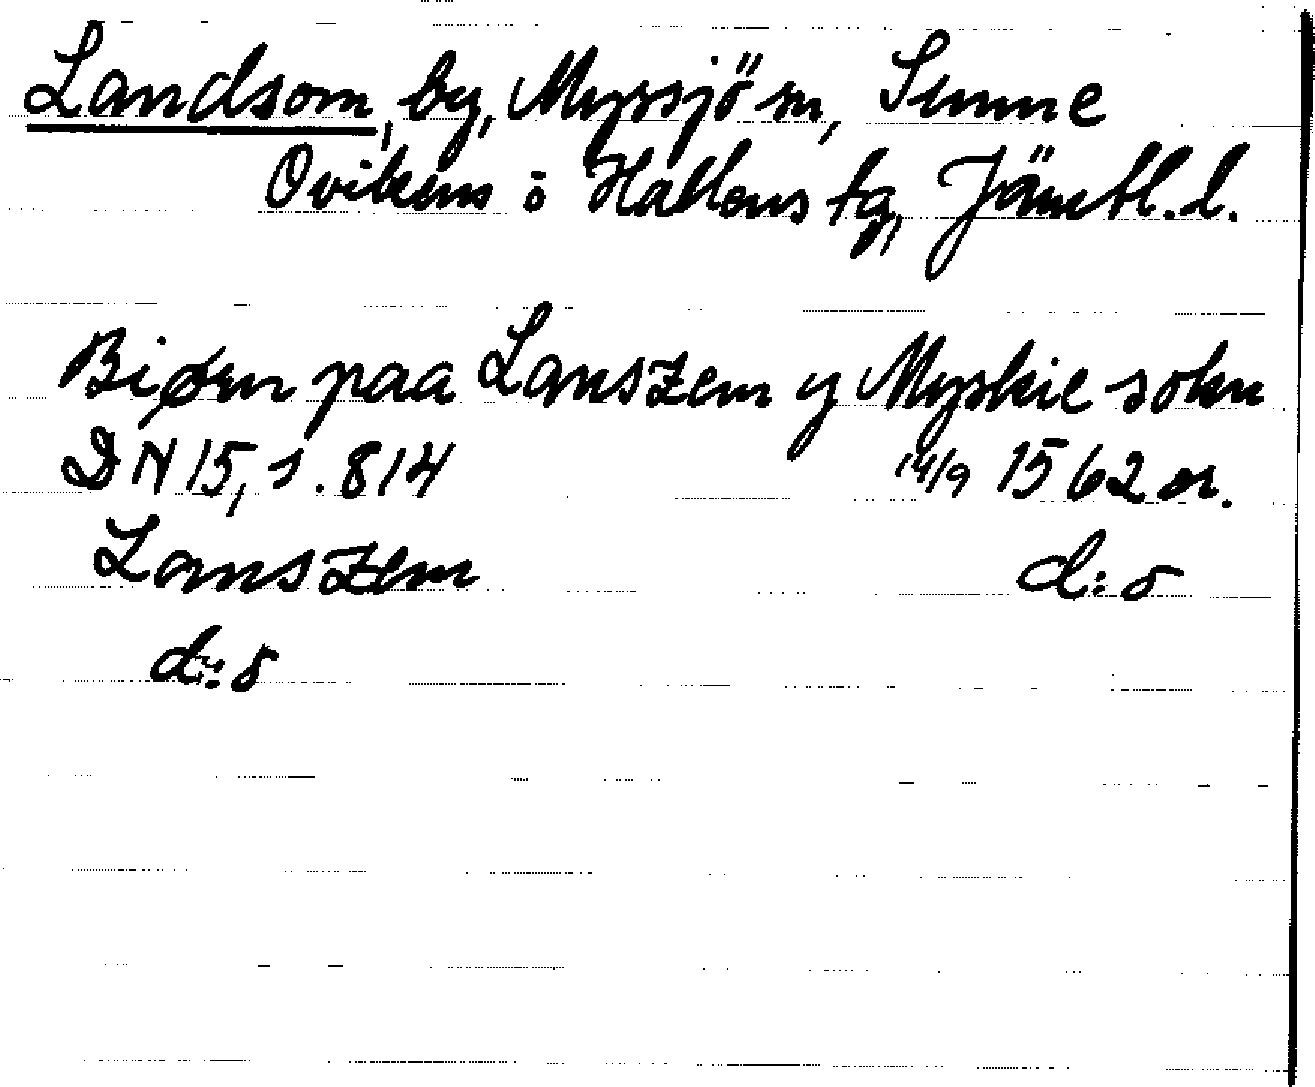 Landsom, by, Myssjö sn, Sunne
Ovikens o Hallens tg, Jämtl. l.
Biørn paa Lanszem y Myskie sokn
DN 15, s. 814 14/9 1562 or.
Lanszem d:o
d:o